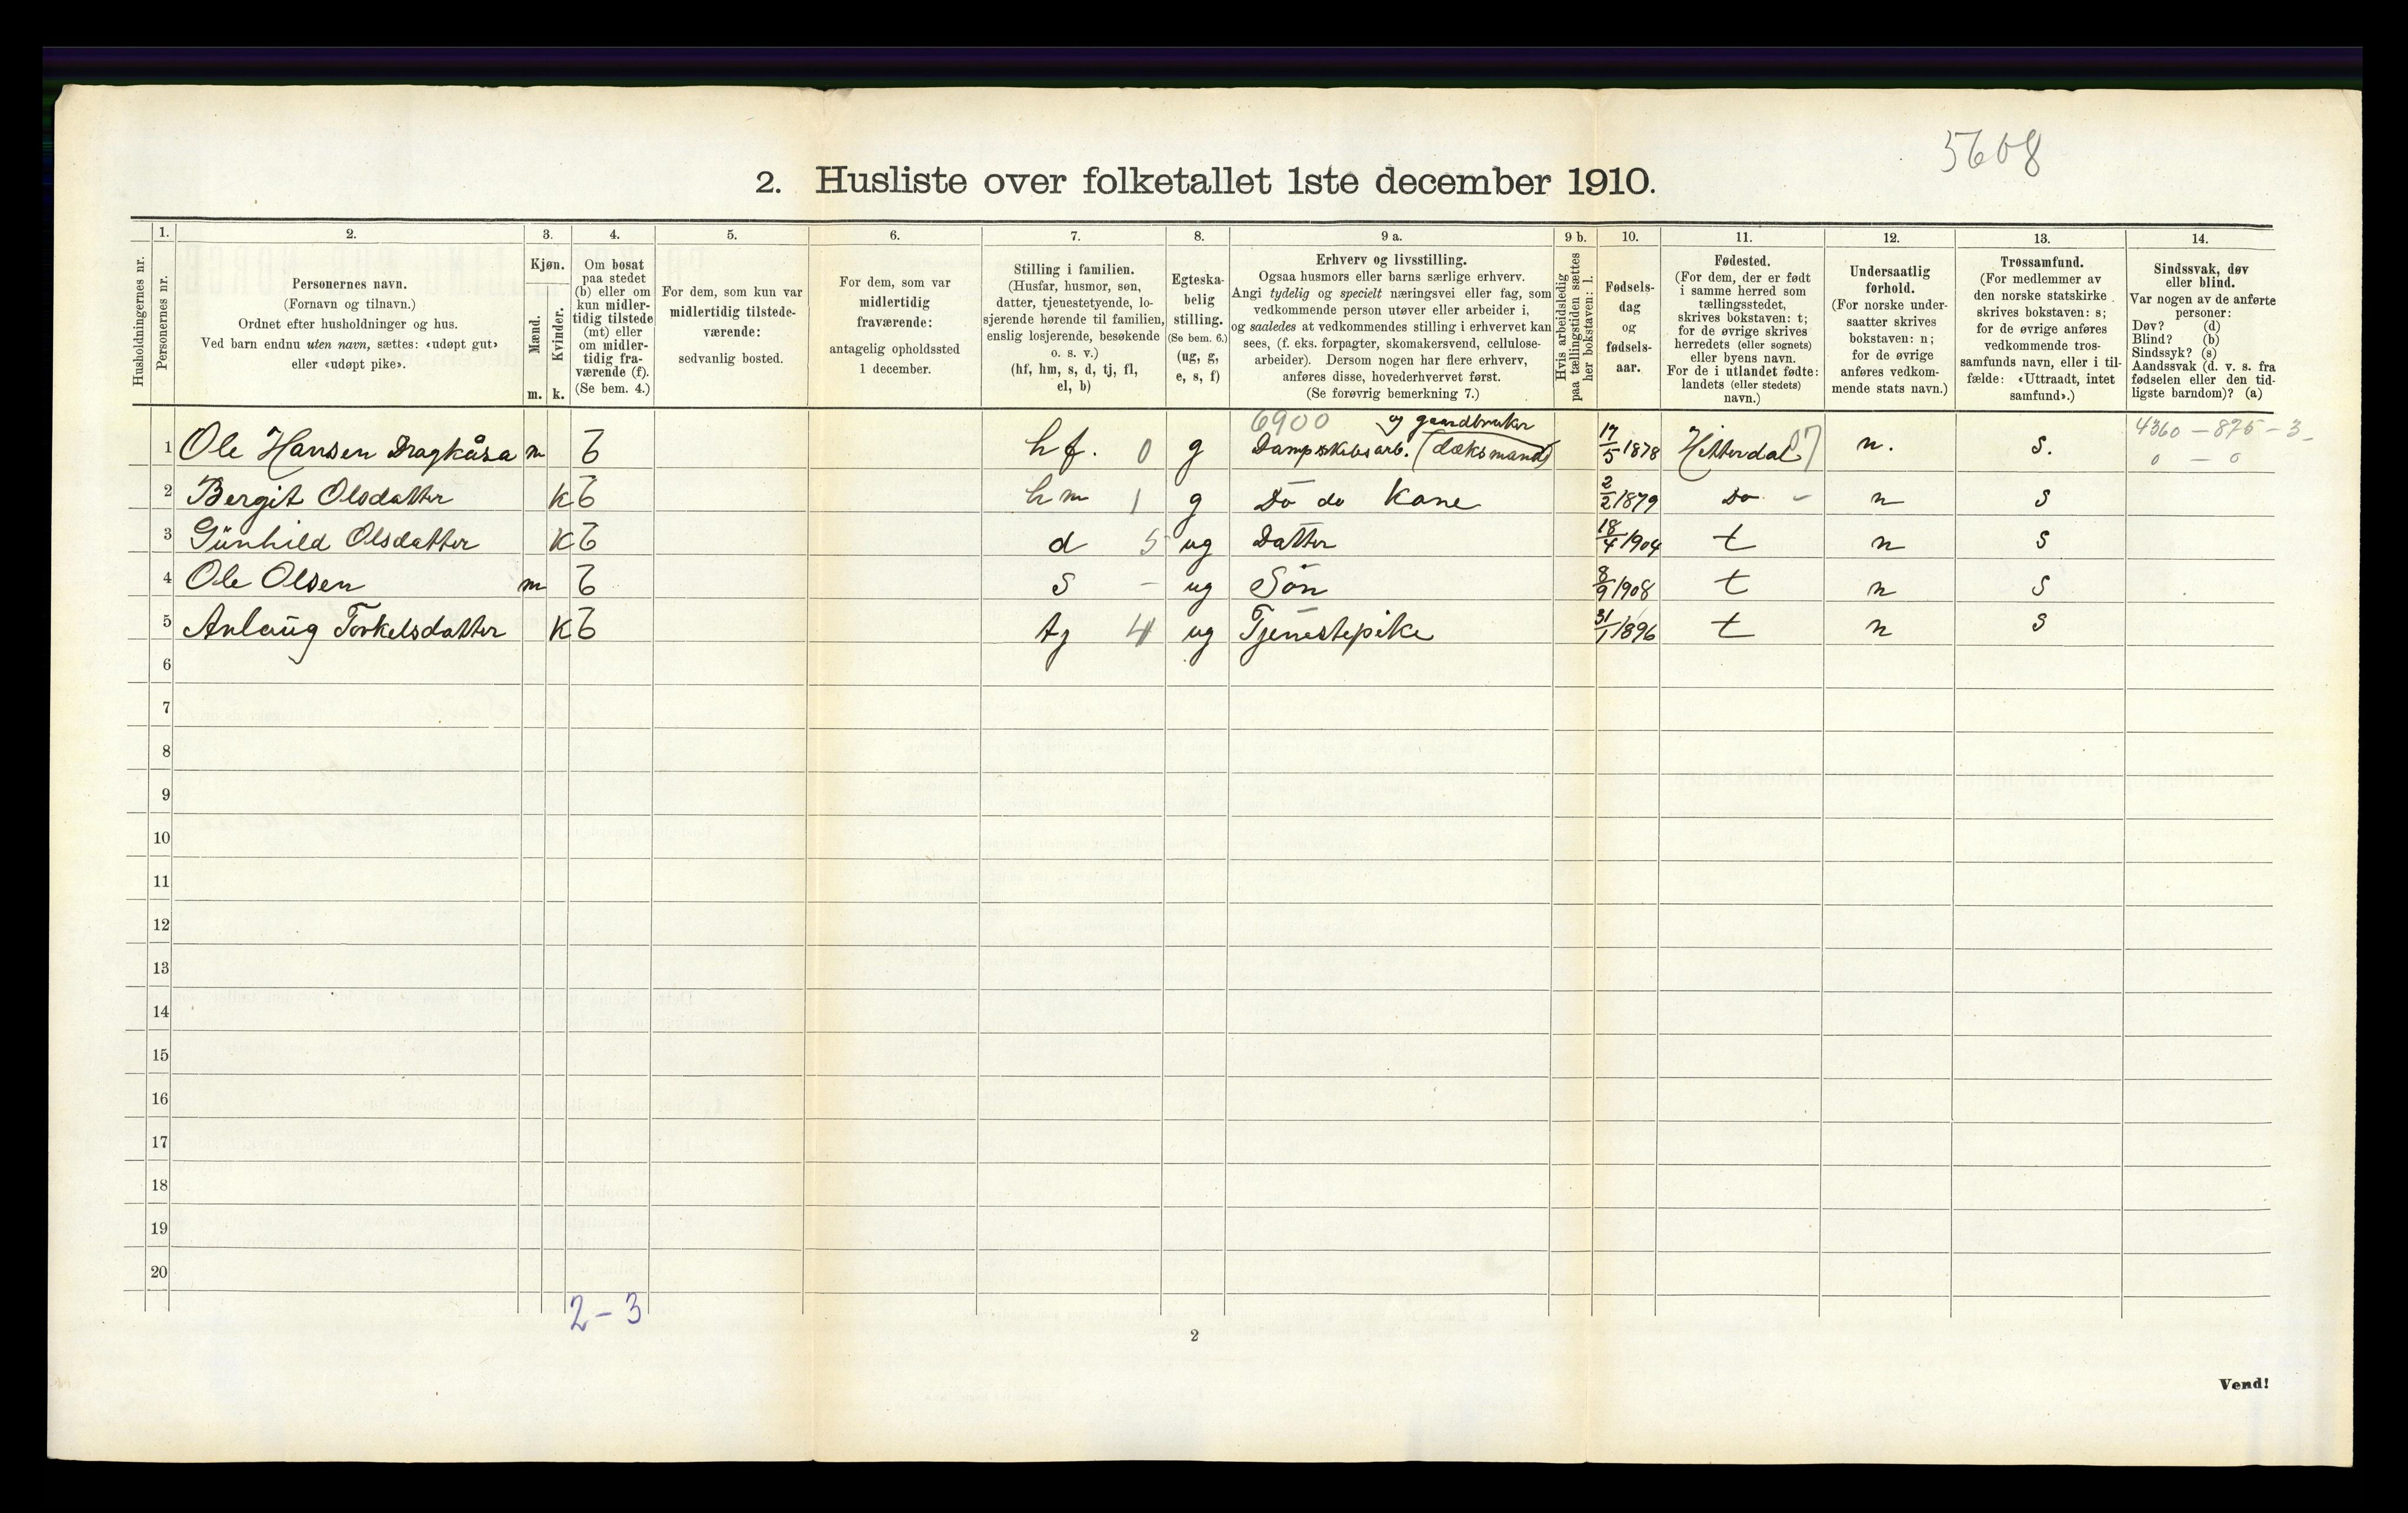 5608
2. Husliste over folketallet 1ste december 1910.
Husholdningernes nr.
1.
Personernes nr.
2.
Personernes navn.
(Fornavn og tilnavn.)
Ordnet efter husholdninger og hus.
Ved barn endnu uten navn, sættes: «udøpt gut»
eller «udøpt pike».
3.
Kjøn.
Mænd.
Kvinder.
m. k.
4.
Om bosat
paa stedet
(b) eller om
kun midler-
tidig tilstede
(mt) eller
om midler-
tidig fra-
værende (f).
(Se bem. 4.)
5.
For dem, som kun var
midlertidig tilstede-
værende:
sedvanlig bosted.
6.
For dem, som var
midlertidig
fraværende:
antagelig opholdssted
1 december.
7.
Stilling i familien.
(Husfar, husmor, søn,
datter, tjenestetyende, lo-
sjerende hørende til familien,
enslig losjerende, besøkende
o. s. v.)
(hf, hm, s, d, tj, fl,
el, b)
8.
Egteska-
belig
stilling.
(Se bem. 6.)
(ug, g,
e, s, f)
9 a.
Erhverv og livsstilling.
Ogsaa husmors eller barns særlige erhverv.
Angi tydelig og specielt næringsvei eller fag, som
vedkommende person utøver eller arbeider i,
og saaledes at vedkommendes stilling i erhvervet kan
sees, (f. eks. forpagter, skomakersvend, cellulose-
arbeider). Dersom nogen har flere erhverv,
anføres disse, hovederhvervet først.
(Se forøvrig bemerkning 7.)
9 b.
Hvis arbeidsledig
paa tællingstiden sættes
her bokstaven: l.
10.
Fødsels-
dag
og
fødsels-
aar.
11.
Fødested.
(For dem, der er født
i samme herred som
tællingsstedet,
skrives bokstaven: t;
for de øvrige skrives
herredets (eller sognets)
eller byens navn.
For de i utlandet fødte:
landets (eller stedets)
navn.)
12.
Undersaatlig
forhold.
(For norske under-
saatter skrives
bokstaven: n;
for de øvrige
anføres vedkom-
mende stats navn.)
13.
Trossamfund.
(For medlemmer av
den norske statskirke
skrives bokstaven: s;
for de øvrige anføres
vedkommende tros-
samfunds navn, eller i til-
fælde: «Uttraadt, intet
samfund».)
14.
Sindssvak, døv
eller blind.
Var nogen av de anførte
personer:
Døv? (d)
Blind? (b)
Sindssyk? (s)
Aandssvak (d. v. s. fra
fødselen eller den tid-
ligste barndom)? (a)
6900 og gaardbruker 4360 – 875 – 3
1 Ole Hansen Dragkåsa m b hf. 0 g Dampskibsarb. (dæksmand) 17/5 1878 Hitterdal 07 n. s. 0 – 0
2 Bergit Olsdatter k b hm 1 g Do do Kone 2/2 1879 Do – n s
3 Gunhild Olsdatter k b d 5 ug Datter 18/4 1904 t n s
4 Ole Olsen m b s – ug Søn 8/9 1908 t n s
5 Anlaug Torkelsdatter k b tj 4 ug Tjenestepike 31/1 1896 t n s
6
7
8
9
10
11
12
13
14
15
16
17
18
19
20
2 – 3
2
Vend!